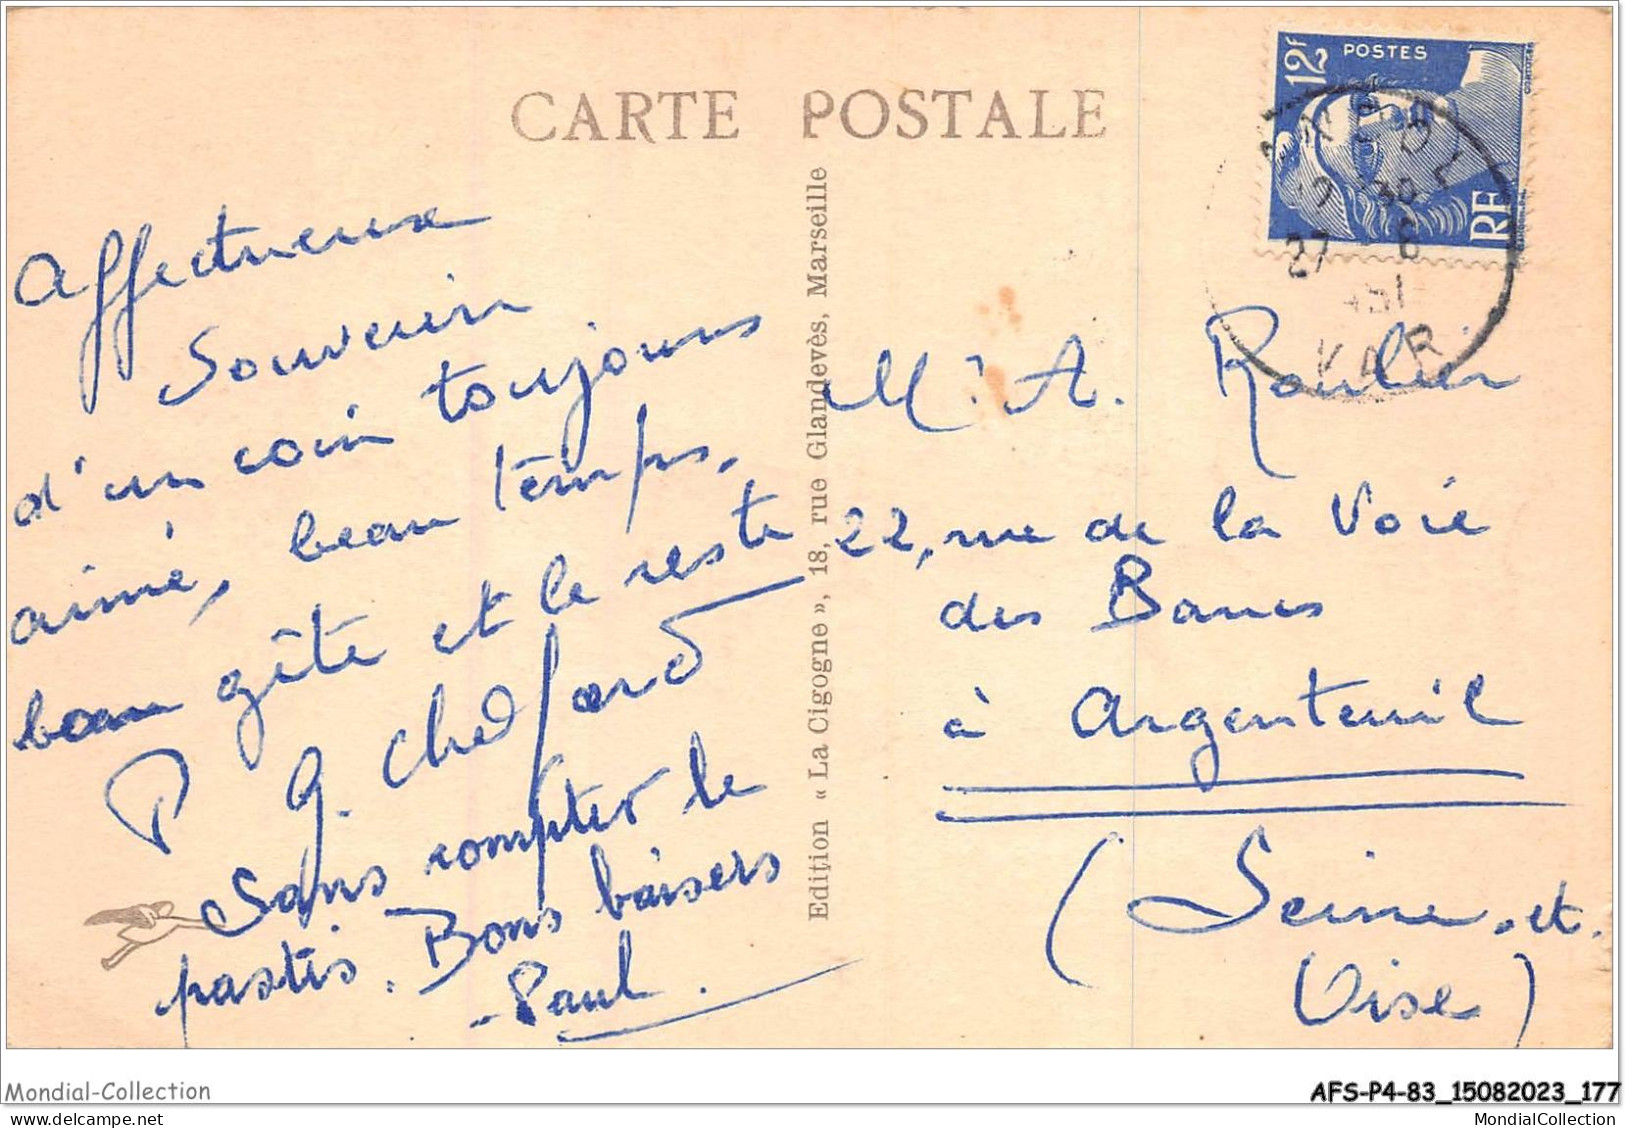 CARTE POSTALE
12F POSTES
RF
27 - 6
51
VAR
Affectueux
Souvenir
d'un coin toujours
aimé, beau temps,
beau gîte et le reste
P G. Chedford
Sans compter le
pastis. Bons baisers
- Paul.
Edition « La Cigogne », 18, rue Glandevès, Marseille
Mr A.
22, rue de la Voie
des Bancs
à Argenteuil
(Seine-et-
Oise)
Mondial-Collection
AFS-P4-83_15082023_177
MondialCollection